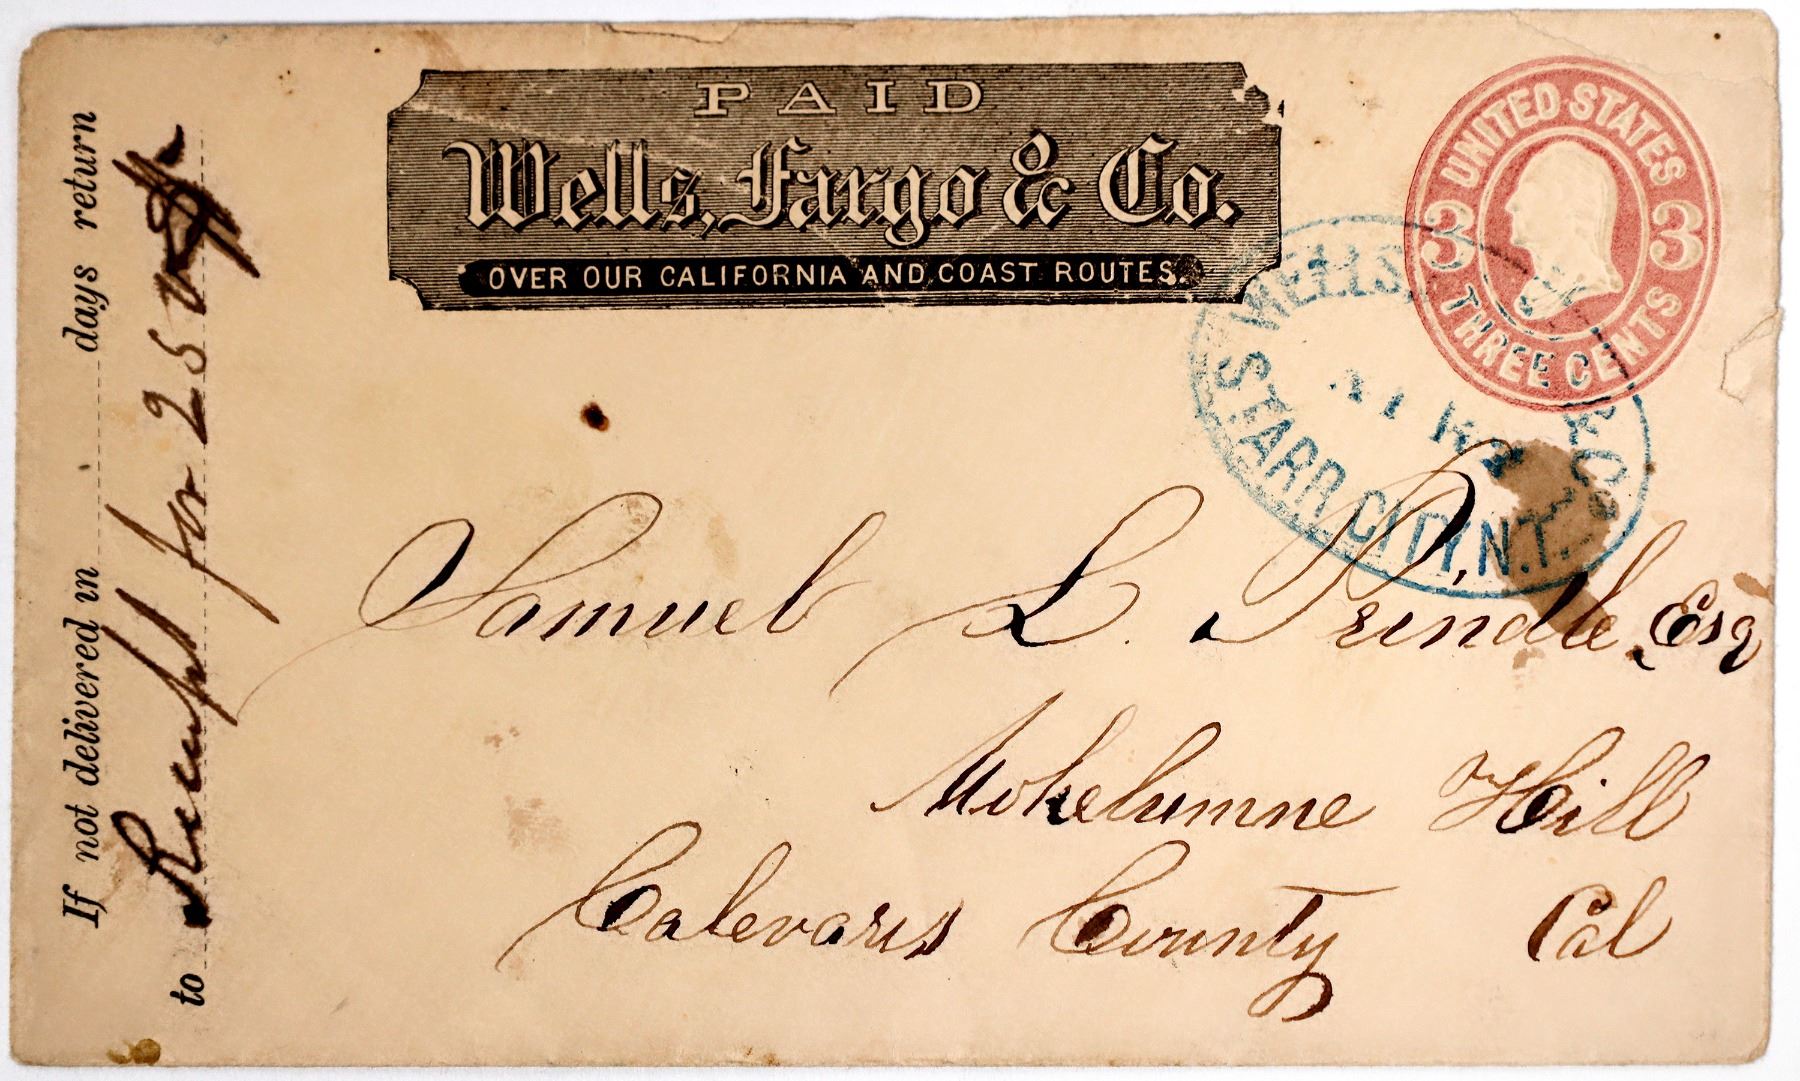 PAID
Wells, Fargo & Co.
OVER OUR CALIFORNIA AND COAST ROUTES.
UNITED STATES
3 3
THREE CENTS
WELLS, & CO.
STARR CITY, N.T.
Samuel L. Prindle, Esq
Mokelumne Hill
Calevaris County Cal
If not delivered in days return
to
for 25